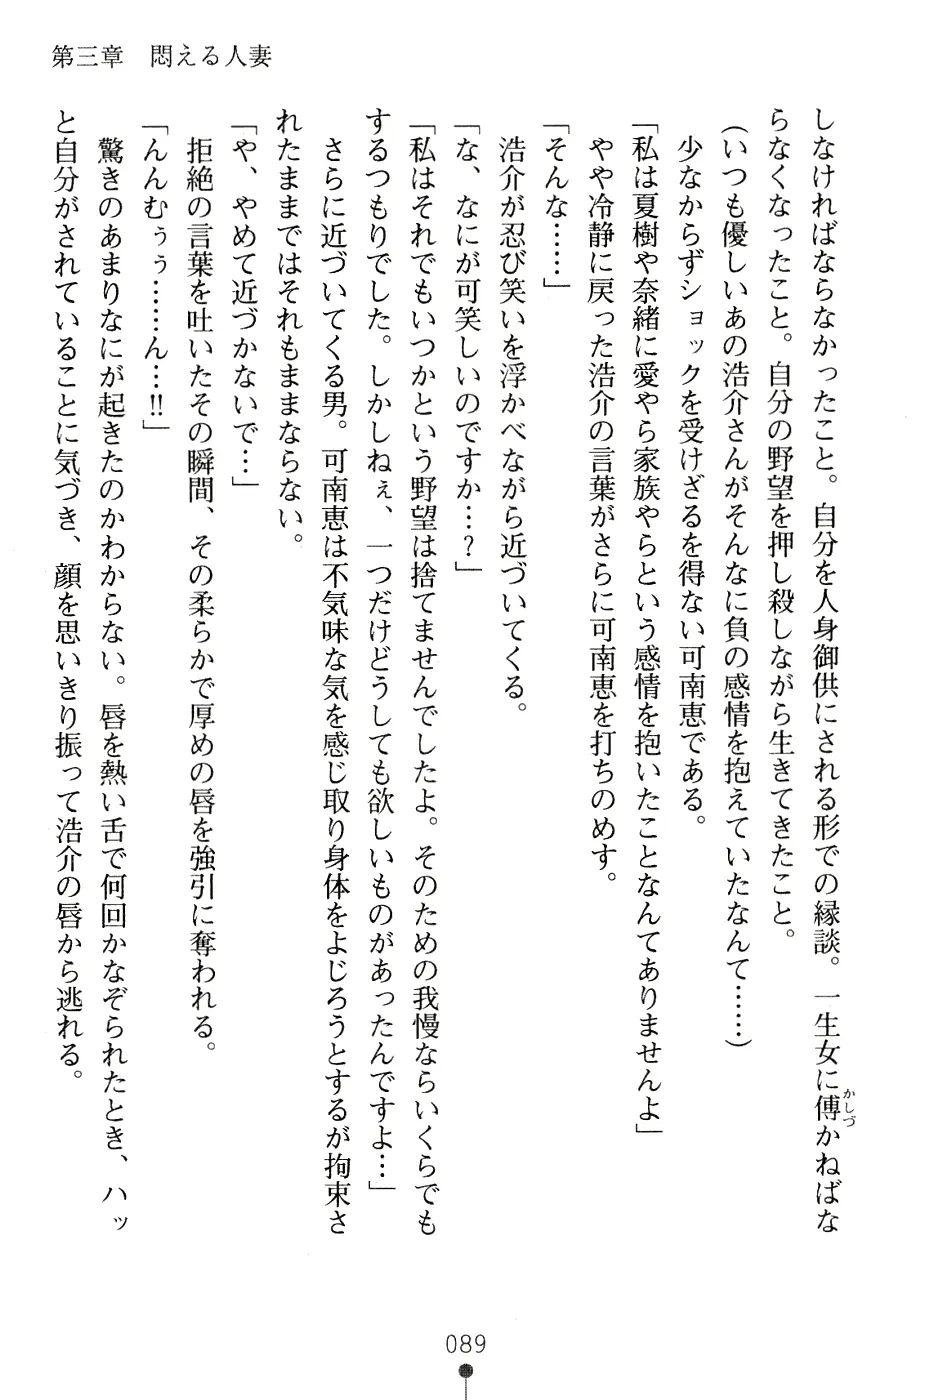 第三章　悶える人妻
しなければならなかったこと。自分を人身御供にされる形での縁談。一生女に傅かねばな
かしづ
らなくなったこと。自分の野望を押し殺しながら生きてきたこと。
（いつも優しいあの浩介さんがそんなに負の感情を抱えていたなんて……）
少なからずショックを受けざるを得ない可南恵である。
「私は夏樹や奈緒に愛やら家族やらという感情を抱いたことなんてありませんよ」
やや冷静に戻った浩介の言葉がさらに可南恵を打ちのめす。
「そんな……」
浩介が忍び笑いを浮かべながら近づいてくる。
「な、なにが可笑しいのですか…？」
「私はそれでもいつかという野望は捨てませんでしたよ。そのための我慢ならいくらでも
するつもりでした。しかしねぇ、一つだけどうしても欲しいものがあったんですよ…」
さらに近づいてくる男。可南恵は不気味な気を感じ取り身体をよじろうとするが拘束さ
れたままではそれもままならない。
「や、やめて近づかないで…」
拒絶の言葉を吐いたその瞬間、その柔らかで厚めの唇を強引に奪われる。
「んんむぅぅ……ん…!!」
驚きのあまりなにが起きたのかわからない。唇を熱い舌で何回かなぞられたとき、ハッ
と自分がされていることに気づき、顔を思いきり振って浩介の唇から逃れる。
089